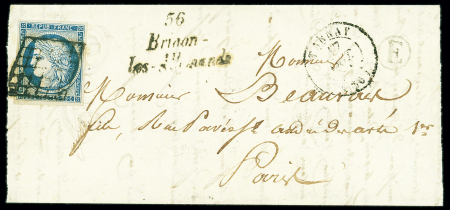 REPUB. FRANC.
56
Brinon-
les-Allemands
Monsieur
Monsieur Beauvais
fils, Rue Pavée St andré des arts
Paris